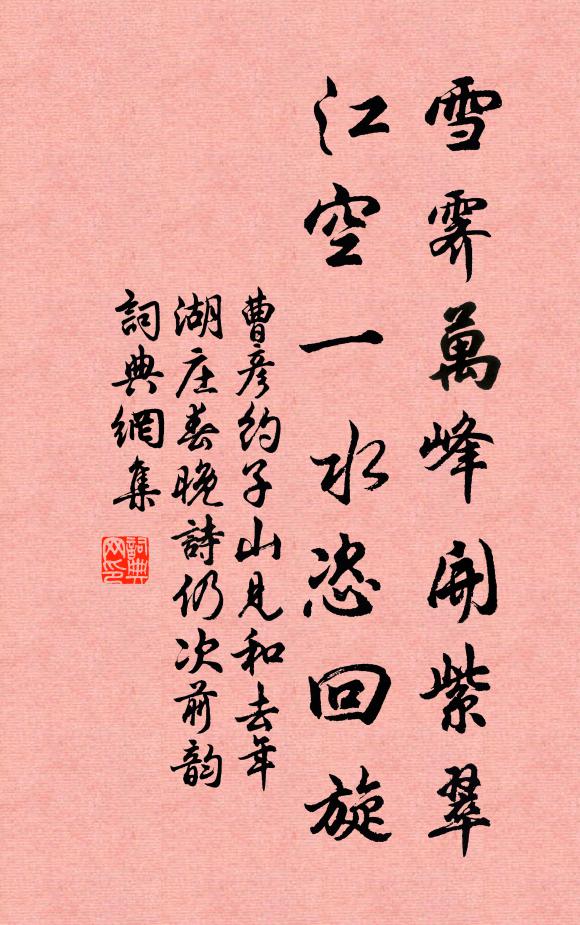 雪霽萬峰開紫翠
江空一水恣回旋
曹彥約子山見和去年
湖庄春晚詩仍次前韵
詞典網集
詞典
网印